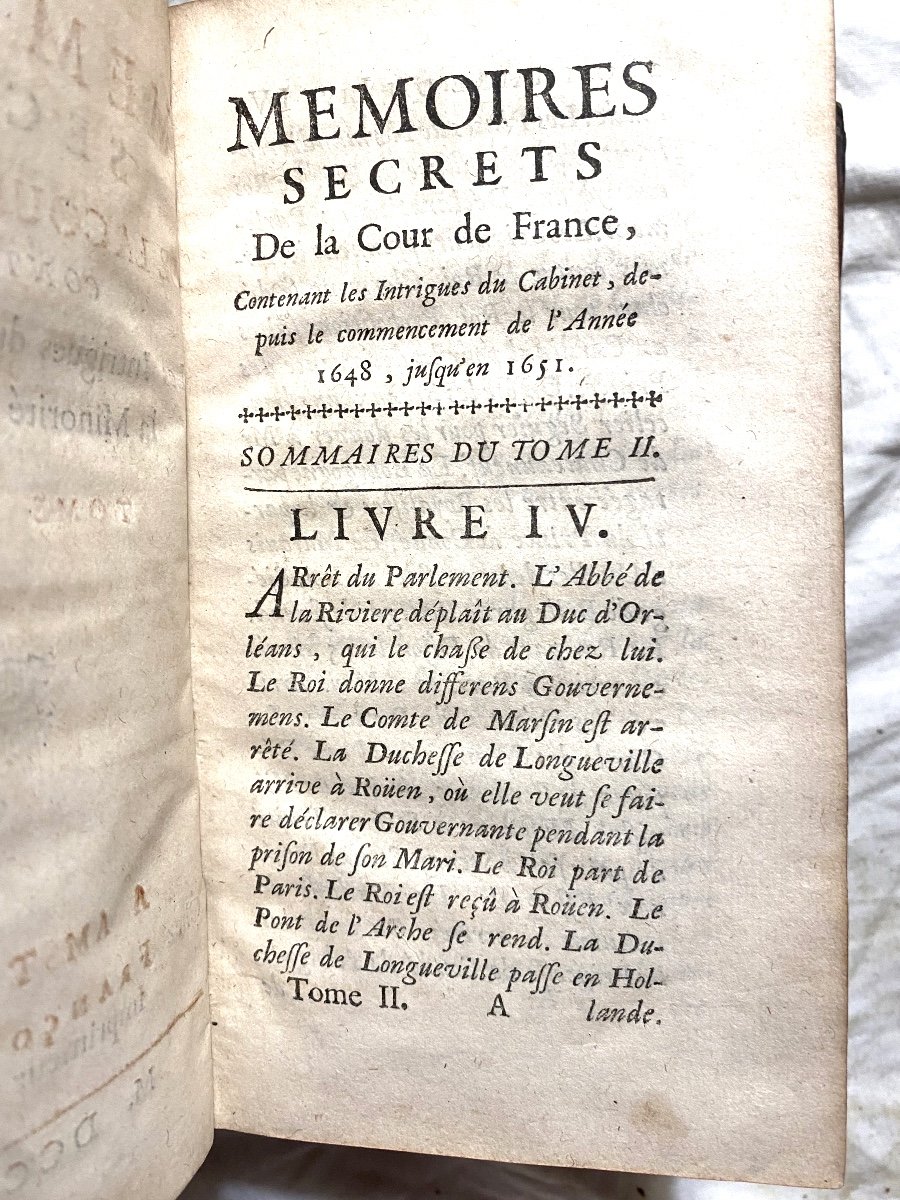 MEMOIRES
SECRETS
De la Cour de France,
Contenant les Intrigues du Cabinet, de-
puis le commencement de l'Année
1648, juſqu'en 1651.
SOMMAIRES DU TOME II.
LIVRE IV.
ARrêt du Parlement. L'Abbé de
la Riviere déplaît au Duc d'Or-
léans, qui le chaſſe de chez lui.
Le Roi donne differens Gouverne-
mens. Le Comte de Marſin eſt ar-
rêté. La Ducheſſe de Longueville
arrive à Roüen, où elle veut ſe fai-
re déclarer Gouvernante pendant la
priſon de ſon Mari. Le Roi part de
Paris. Le Roi eſt reçû à Roüen. Le
Pont de l'Arche ſe rend. La Du-
cheſſe de Longueville paſſe en Hol-
Tome II. A lande.